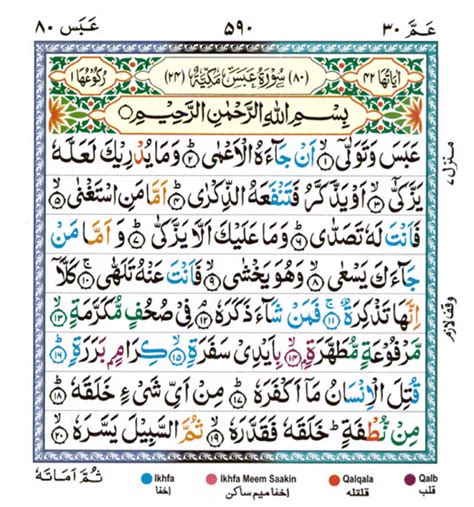 عَمَّ ۳۰ ۵۹۰ عَبَسَ ۸۰
اٰیَاتُهَا ۴۲ (۸۰) سُوْرَةُ عَبَسَ مَكِّيَّةٌ (۲۴) رُكُوْعُهَا
بِسْمِ اللّٰهِ الرَّحْمٰنِ الرَّحِيْمِ
عَبَسَ وَتَوَلّٰٓى ۙ‏﴿۱﴾ اَنْ جَآءَهُ الْاَعْمٰى ؕ‏﴿۲﴾ وَمَا يُدْرِيْكَ لَعَلَّهٗ
يَزَّكّٰٓى ۙ‏﴿۳﴾ اَوْ يَذَّكَّرُ فَتَنْفَعَهُ الذِّكْرٰى ؕ‏﴿۴﴾ اَمَّا مَنِ اسْتَغْنٰى ۙ‏﴿۵﴾
فَاَنْتَ لَهٗ تَصَدّٰى ؕ‏﴿۶﴾ وَمَا عَلَيْكَ اَلَّا يَزَّكّٰى ؕ‏﴿۷﴾ وَاَمَّا مَنْ
جَآءَكَ يَسْعٰى ۙ‏﴿۸﴾ وَهُوَ يَخْشٰى ۙ‏﴿۹﴾ فَاَنْتَ عَنْهُ تَلَهّٰى ۚ‏﴿۱۰﴾ كَلَّاۤ
اِنَّهَا تَذْكِرَةٌ ۚ‏﴿۱۱﴾ فَمَنْ شَآءَ ذَكَرَهٗ ۘ‏﴿۱۲﴾ فِىْ صُحُفٍ مُّكَرَّمَةٍ ۙ‏﴿۱۳﴾
مَّرْفُوْعَةٍ مُّطَهَّرَةٍۭ ۙ‏﴿۱۴﴾ بِاَيْدِىْ سَفَرَةٍ ۙ‏﴿۱۵﴾ كِرَامٍۭ بَرَرَةٍ ؕ‏﴿۱۶﴾
قُتِلَ الْاِنْسَانُ مَاۤ اَكْفَرَهٗ ؕ‏﴿۱۷﴾ مِنْ اَىِّ شَىْءٍ خَلَقَهٗ ؕ‏﴿۱۸﴾
مِنْ نُّطْفَةٍ ؕ خَلَقَهٗ فَقَدَّرَهٗ ۙ‏﴿۱۹﴾ ثُمَّ السَّبِيْلَ يَسَّرَهٗ ۙ‏﴿۲۰﴾
منزل ۷
وقف لازم
ثُمَّ اَمَاتَهٗ
Ikhfa اخفا
Ikhfa Meem Saakin اخفا میم ساکن
Qalqala قلقله
Qalb قلب